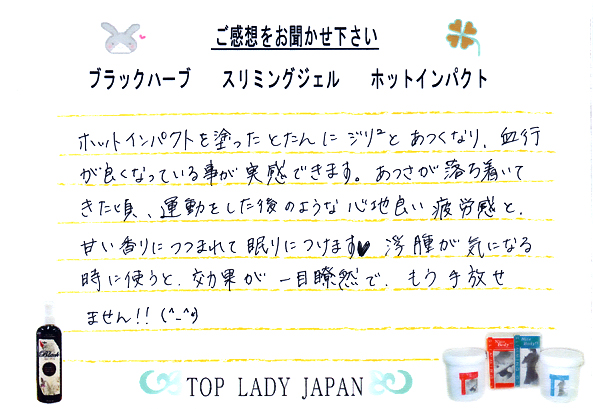 ご感想をお聞かせ下さい
ブラックハーブ　スリミングジェル　ホットインパクト
ホットインパクトを塗ったとたんにジリ²とあつくなり、血行
が良くなっている事が実感できます。あつさが落ち着いて
きた頃、運動をした後のような心地良い疲労感と、
甘い香りにつつまれて眠りにつけます♥ 浮腫が気になる
時に使うと、効果が一目瞭然で、もう手放せ
ません!! (^_^)
Black
TOP LADY JAPAN